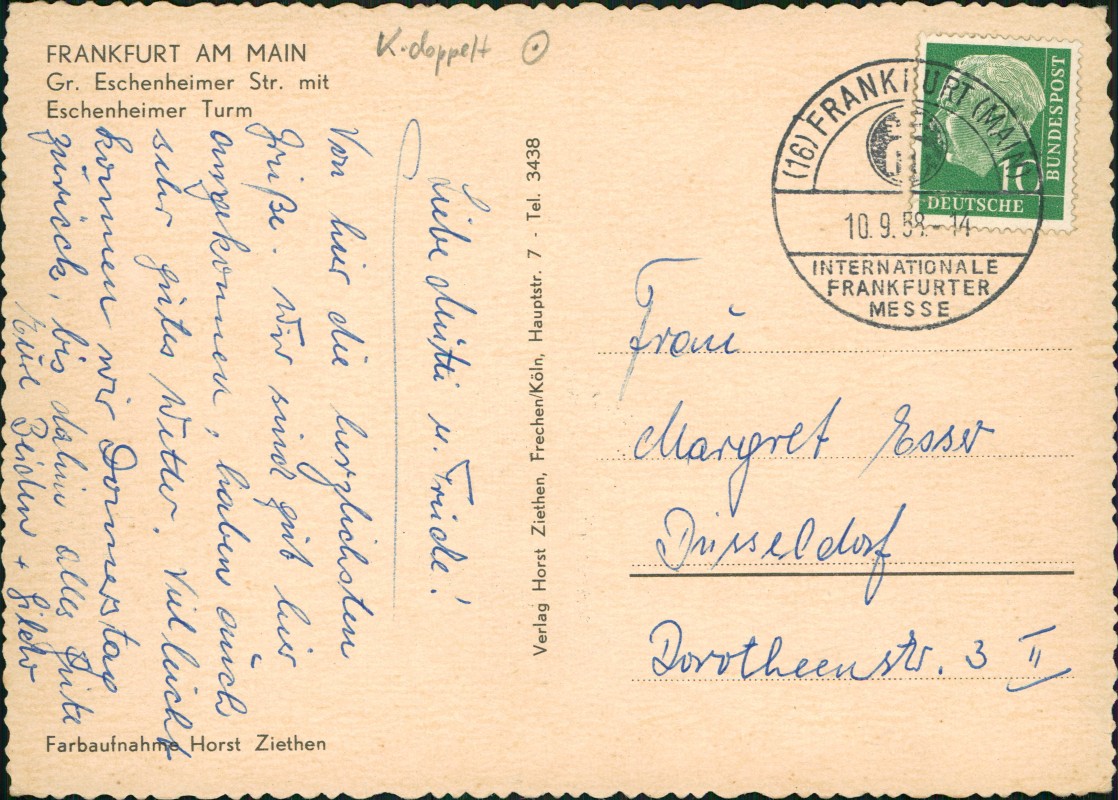 FRANKFURT AM MAIN
Gr. Eschenheimer Str. mit
Eschenheimer Turm
K-doppelt
Liebe Mutti u. Friedel!
Von hier die herzlichsten
Grüße. Wir sind gut hier
angekommen, haben auch
sehr gutes Wetter. Vielleicht
kommen wir Donnerstag
zurück, bis dahin alles Gute
Eure Beiden +
Farbaufnahme Horst Ziethen
Verlag Horst Ziethen, Frechen/Köln, Hauptstr. 7 - Tel. 3438
(16) FRANKFURT (MAIN)
10.9.58.-14
INTERNATIONALE
FRANKFURTER
MESSE
10
DEUTSCHE
BUNDESPOST
Frau
Margret Esser
Düsseldorf
Dorotheenstr. 3 II